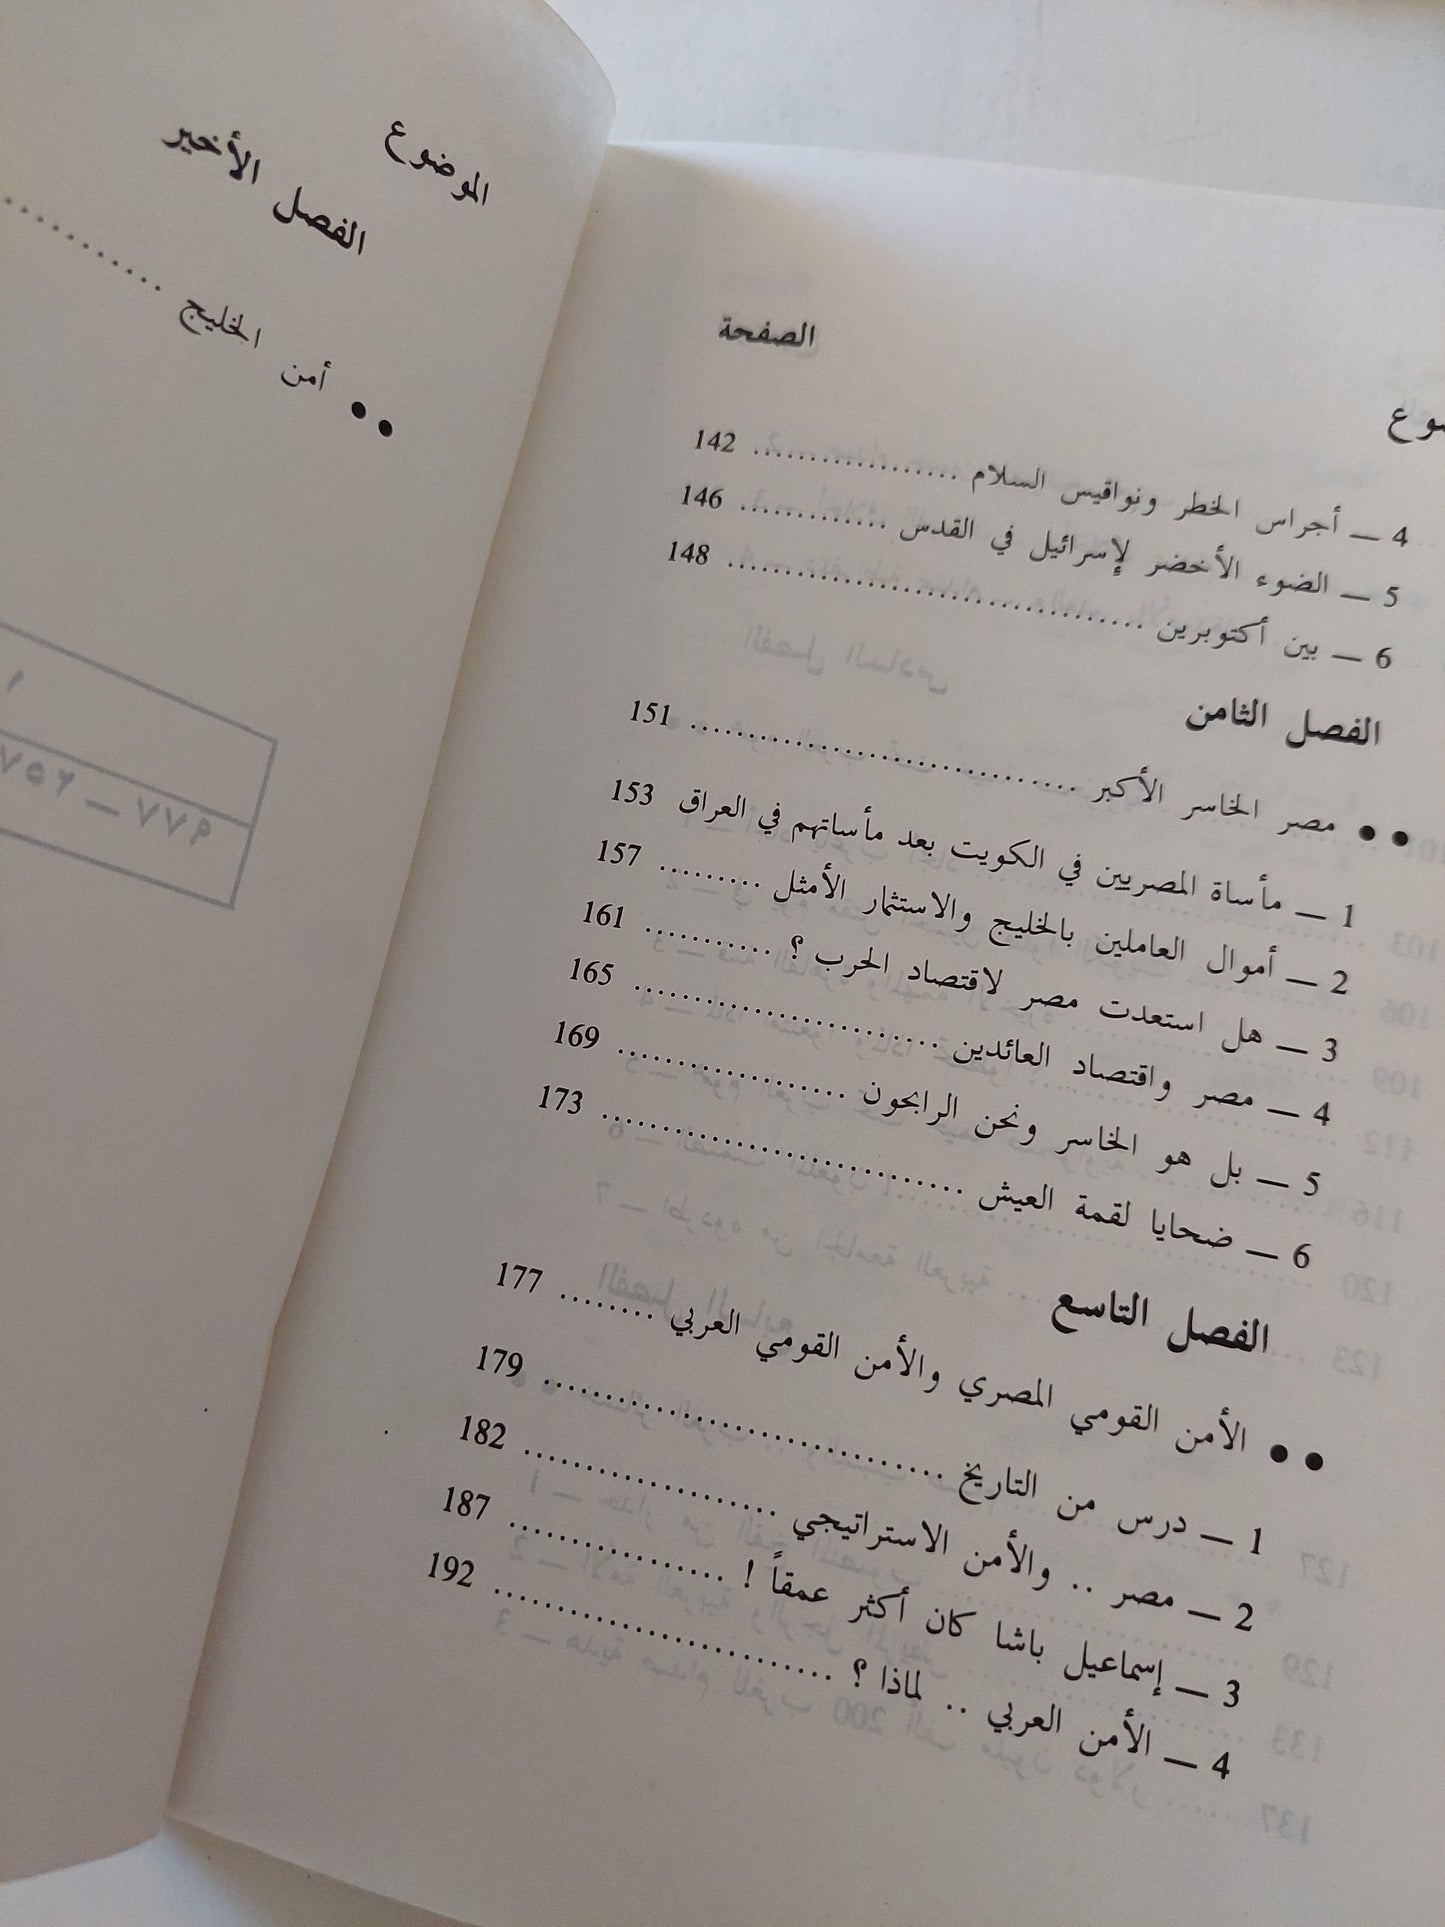 الصفحة
4 ــ أجراس الخطر ونواقيس السلام .................. 142
5 ــ الضوء الأخضر لإسرائيل في القدس ............. 146
6 ــ بين أكتوبرين .................................... 148
الفصل الثامن
●● مصر الخاسر الأكبر .................................. 151
1 ــ مأساة المصريين في الكويت بعد مأساتهم في العراق 153
2 ــ أموال العاملين بالخليج والاستثمار الأمثل ......... 157
3 ــ هل استعدت مصر لاقتصاد الحرب ؟ ........... 161
4 ــ مصر واقتصاد العائدين ........................... 165
5 ــ بل هو الخاسر ونحن الرابحون ................... 169
6 ــ ضحايا لقمة العيش ............................... 173
الفصل التاسع
●● الأمن القومي المصري والأمن القومي العربي ........ 177
1 ــ درس من التاريخ .................................. 179
2 ــ مصر .. والأمن الاستراتيجي ...................... 182
3 ــ إسماعيل باشا كان أكثر عمقاً ! ................... 187
4 ــ الأمن العربي .. لماذا ؟ ............................ 192
الموضوع
الفصل الأخير
●● أمن الخليج ...........